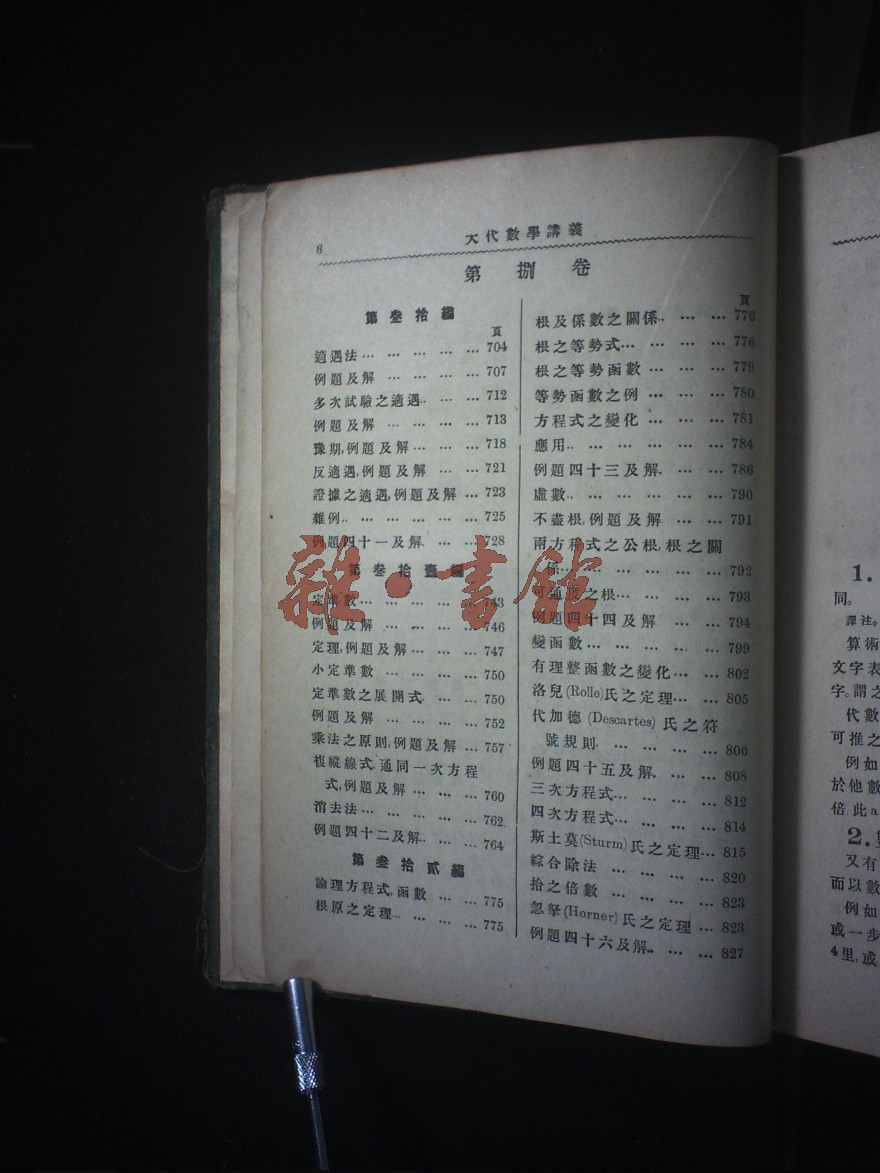 6
大代數學講義
第捌卷
第叁拾編
頁
適遇法 … … … … … 704
例題及解 … … … … 707
多次試驗之適遇 … … … 712
例題及解 … … … … 713
豫期,例題及解 … … … 718
反適遇,例題及解 … … 721
證據之適遇,例題及解 … 723
雜例 … … … … … 725
例題四十一及解 … … 728
第叁拾壹編
定準數 … … … … … 743
例題及解 … … … … 746
定理,例題及解 … … … 747
小定準數 … … … … 750
定準數之展開式 … … 750
例題及解 … … … … 752
乘法之原則,例題及解 … 757
複縱線式,通同一次方程
式,例題及解 … … … 760
消去法 … … … … … 762
例題四十二及解 … … 764
第叁拾貳編
論理方程式,函數 … … 775
根原之定理 … … … … 775
頁
根及係數之關係 … … … 776
根之等勢式 … … … … 776
根之等勢函數 … … … 779
等勢函數之例 … … … 780
方程式之變化 … … … 781
應用 … … … … … … 784
例題四十三及解 … … … 786
虛數 … … … … … … 790
不盡根,例題及解 … … 791
兩方程式之公根,根之關
係 … … … … … … 792
可通度之根 … … … … 793
例題四十四及解 … … … 794
變函數 … … … … … 799
有理整函數之變化 … … 802
洛兒(Rolle)氏之定理 … … 805
代加德(Descartes)氏之符
號規則 … … … … … 806
例題四十五及解 … … … 808
三次方程式 … … … … 812
四次方程式 … … … … 814
斯土莫(Sturm)氏之定理 … 815
綜合除法 … … … … 820
拾之倍數 … … … … 823
忽拏(Horner)氏之定理 … 823
例題四十六及解 … … … 827
1.
同。
譯注。
算術
文字表
字。謂之
代數
可推之
例如
於他數
倍,此a
2.
又有
而以數
例如
或一步
4里,或
雜·書館